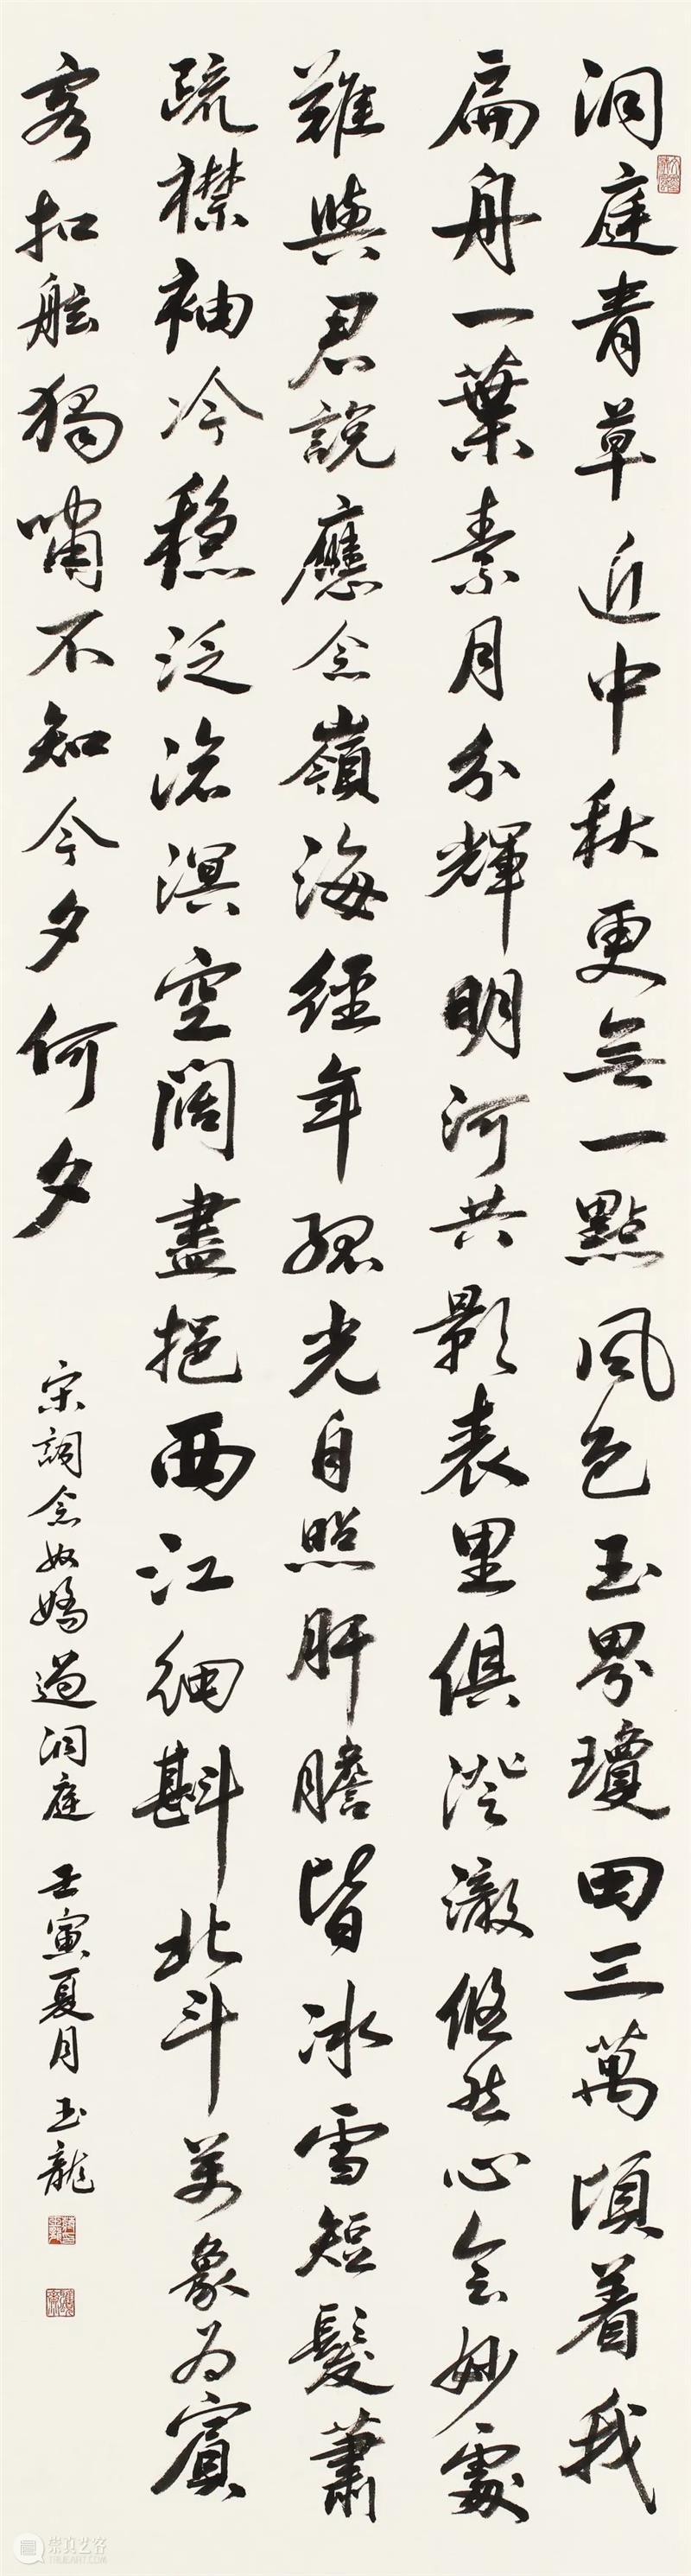 洞庭青草近中秋更無一點風色玉界瓊田三萬頃着我
扁舟一葉素月分輝明河共影表里俱澄澈悠然心會妙處
難與君說應念嶺海經年孤光自照肝膽皆冰雪短髮蕭
疏襟袖冷穩泛滄溟空闊盡挹西江細斟北斗萬象為賓
客扣舷獨嘯不知今夕何夕
宋詞念奴嬌過洞庭 壬寅夏月 玉龍
崇真艺客